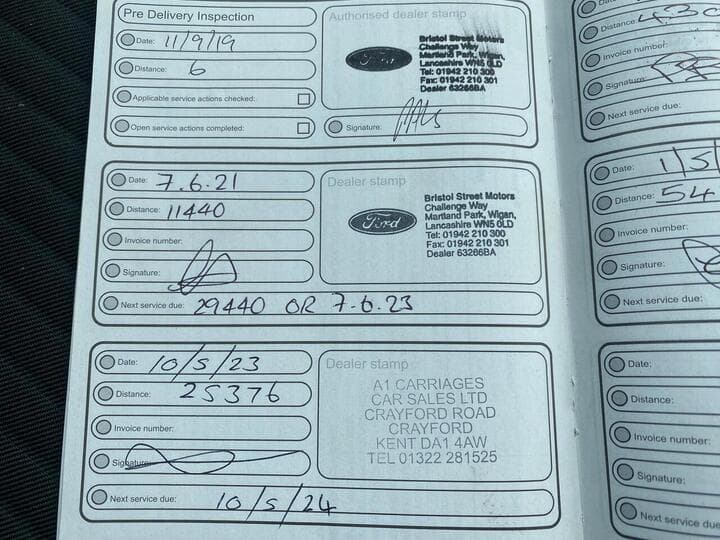 Pre Delivery Inspection
Date: 11/9/19
Distance: 6
Applicable service actions checked:
Open service actions completed:
Authorised dealer stamp
Ford
Bristol Street Motors
Challenge Way
Martland Park, Wigan,
Lancashire WN5 0LD
Tel: 01942 210 300
Fax: 01942 210 301
Dealer 63266BA
Signature:
Date: 7.6.21
Distance: 11440
Invoice number:
Signature:
Next service due: 29440 OR 7.6.23
Dealer stamp
Ford
Bristol Street Motors
Challenge Way
Martland Park, Wigan,
Lancashire WN5 0LD
Tel: 01942 210 300
Fax: 01942 210 301
Dealer 63266BA
Date: 10/5/23
Distance: 25376
Invoice number:
Signature:
Next service due: 10/5/24
Dealer stamp
A1 CARRIAGES
CAR SALES LTD
CRAYFORD ROAD
CRAYFORD
KENT DA1 4AW
TEL 01322 281525
Distance: 430
Invoice number:
Signature:
Next service due:
Date: 1/5/
Distance: 54
Invoice number:
Signature:
Next service due:
Date:
Distance:
Invoice number:
Signature:
Next service due